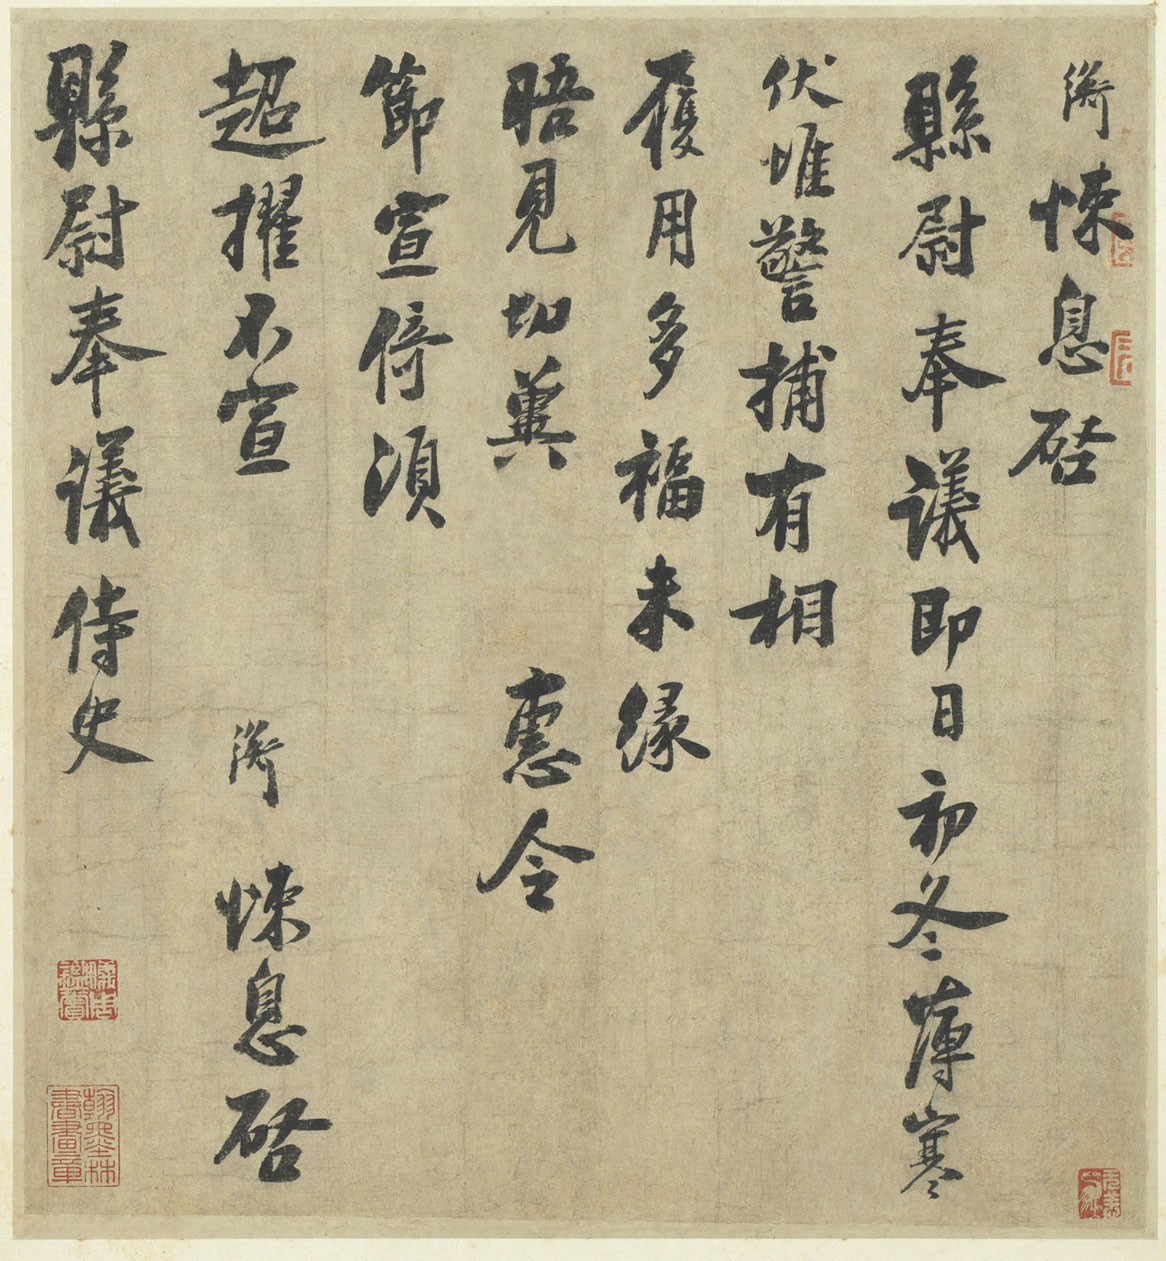 悚息啓
縣尉奉議即日初冬薄寒
伏惟警捕有相
履用多福未緣
晤見切冀　惠令
節宣倚須
超擢不宣
悚息啓
縣尉奉議侍史
翰墨林書畫章